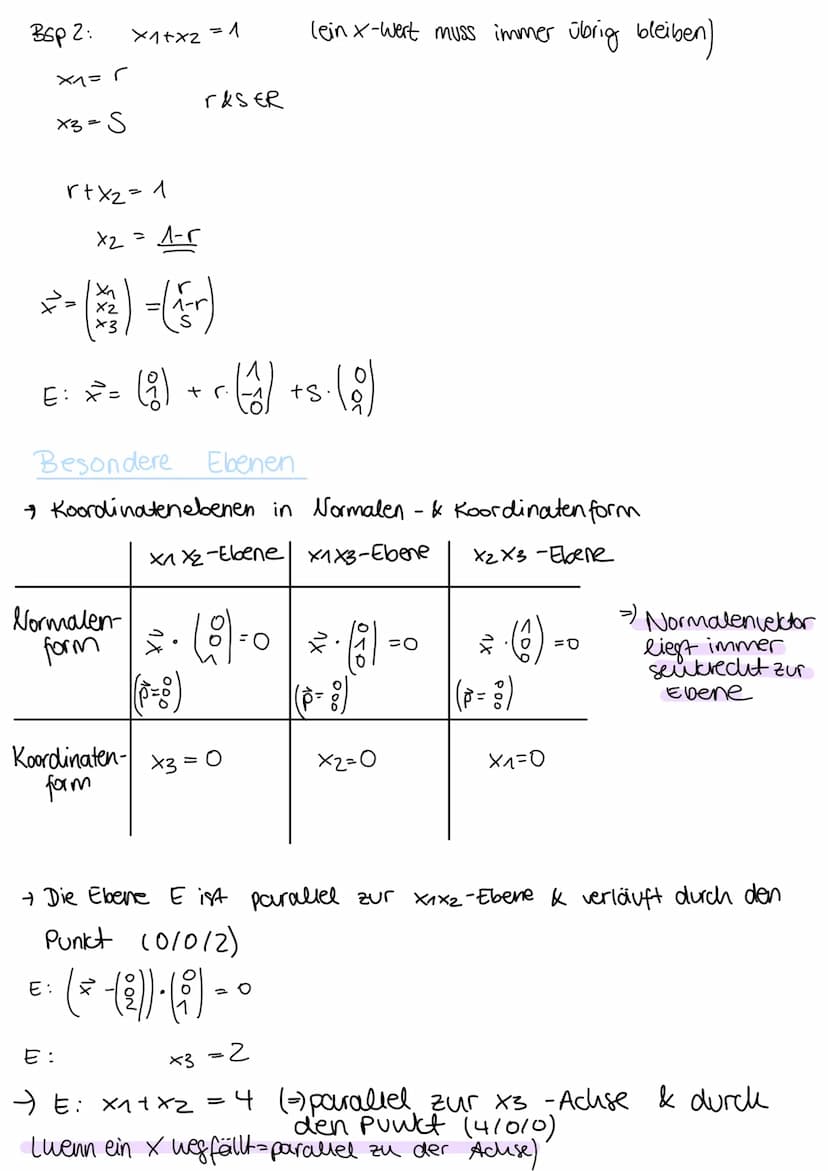 Bsp 2: x1+x2 = 1 (ein x-Wert muss immer übrig bleiben)
x1 = r
r & s ∈ R
x3 = s
r+x2 = 1
x2 = 1-r
x⃗ = (x1 x2 x3) = (r 1-r s)
E: x⃗ = (0 1 0) + r · (1 -1 0) + s · (0 0 1)
Besondere Ebenen
→ Koordinatenebenen in Normalen- & Koordinatenform
x1 x2-Ebene x1 x3-Ebene x2 x3 -Ebene
Normalen-
form
x⃗ · (0 0 1) = 0 x⃗ · (0 1 0) = 0 x⃗ · (1 0 0) = 0
(p⃗ = 0 0 0) (p⃗ = 0 0 0) (p⃗ = 0 0 0)
⇒ Normalenvektor
liegt immer
senkrecht zur
Ebene
Koordinaten-
form
x3 = 0 x2=0 x1=0
→ Die Ebene E ist parallel zur x1x2-Ebene & verläuft durch den
Punkt (0/0/2)
E: (x⃗ - (0 0 2)) · (0 0 1) = 0
E: x3 = 2
→ E: x1+x2 = 4 (⇒ parallel zur x3 -Achse & durch
den Punkt (4/0/0)
(wenn ein x wegfällt = parallel zu der Achse)